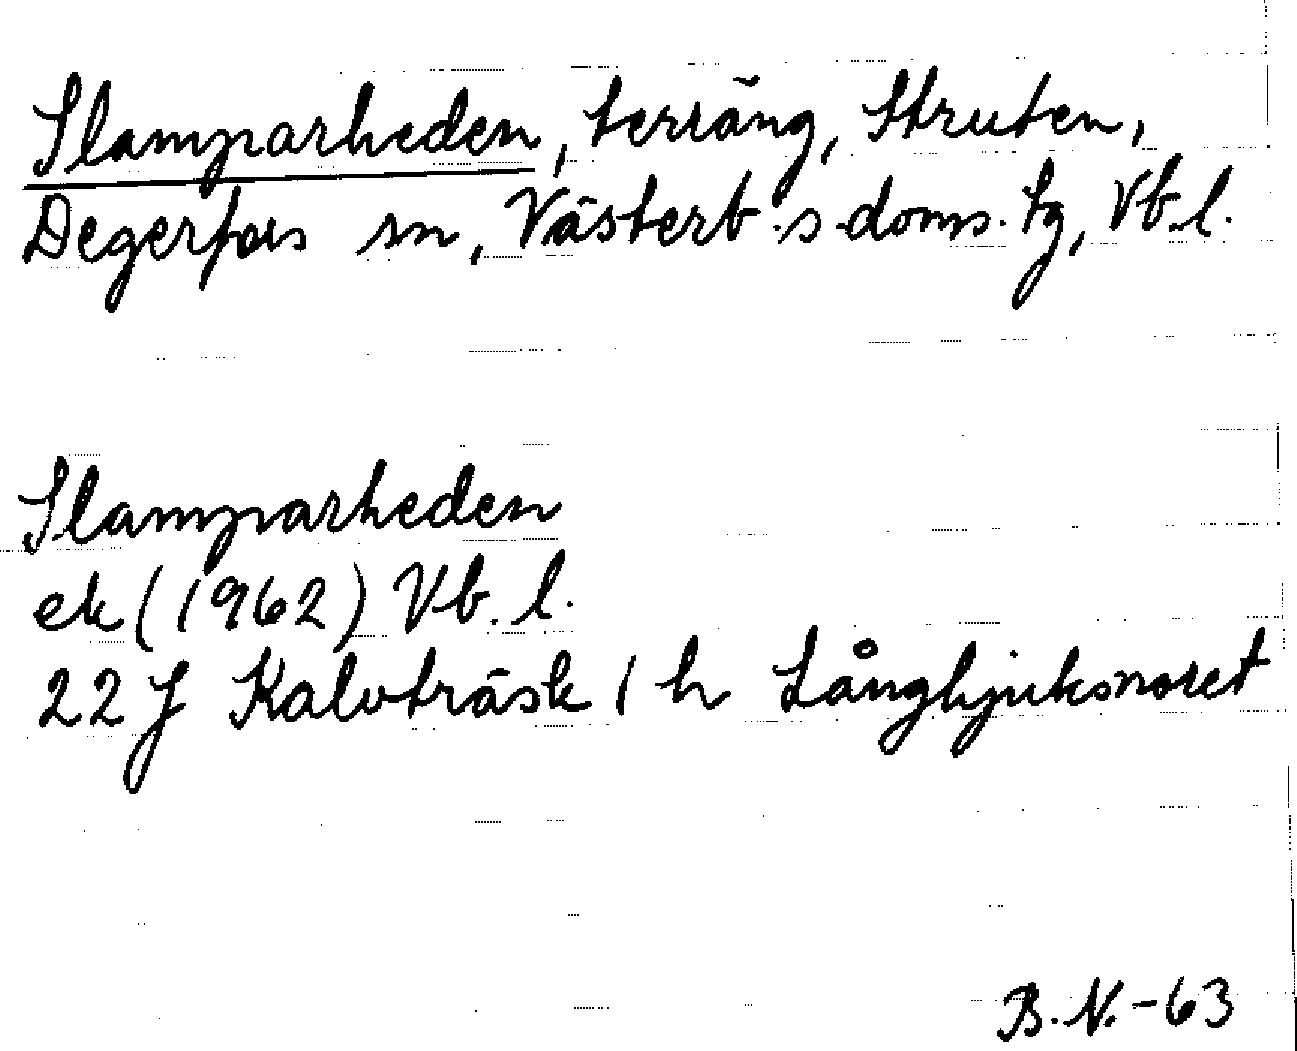 Slamparheden, terräng, Struten,
Degerfors sn, Västerb. s. doms. tg, Vb. l.
Slamparheden
ek (1962) Vb. l.
22 J Kalvträsk 1 h Långhjuksnoret
B. N. -63